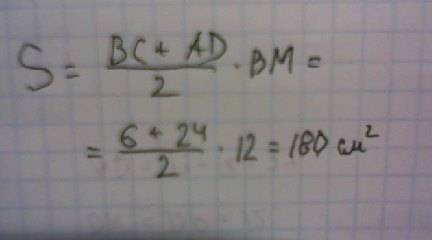 S = (BC + AD)/2 · BM =
= (6 + 24)/2 · 12 = 180 см²